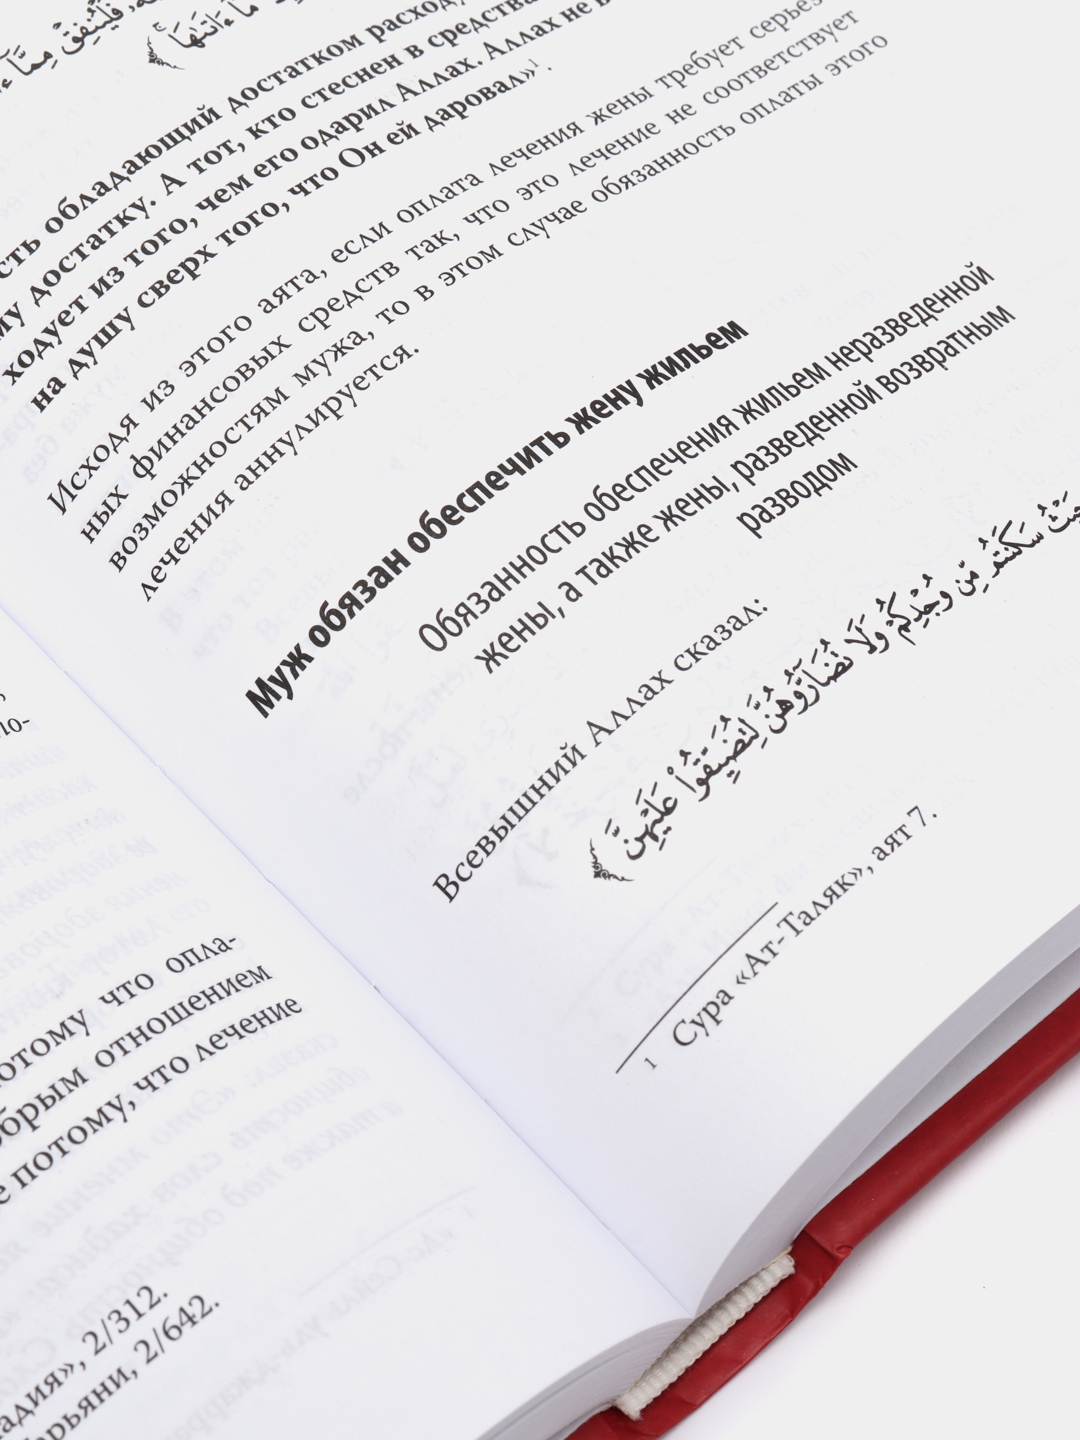 فَلْيُنفِقْ مِمَّا
مَا ءَاتَىٰهَا
обладающий достатком
му достатку. А тот, кто стеснен в средства
ходует из того, чем его одарил Аллах. Аллах не
на душу сверх того, что Он ей даровал»1.
Исходя из этого аята, если оплата лечения жены требует
ных финансовых средств так, что это лечение не соответствует
возможностям мужа, то в этом случае обязанность оплаты этого
лечения аннулируется.
Муж обязан обеспечить жену жильем
Обязанность обеспечения жильем неразведенной
жены, а также жены, разведенной возвратным
разводом
Всевышний Аллах сказал:
سَكَنتُم مِّن وُجْدِكُمْ وَلَا تُضَآرُّوهُنَّ لِتُضَيِّقُوا۟ عَلَيْهِنَّ
1 Сура «Ат-Таляк», аят 7.
что опла-
отношением
потому, что лечение
2/312.
2/642.